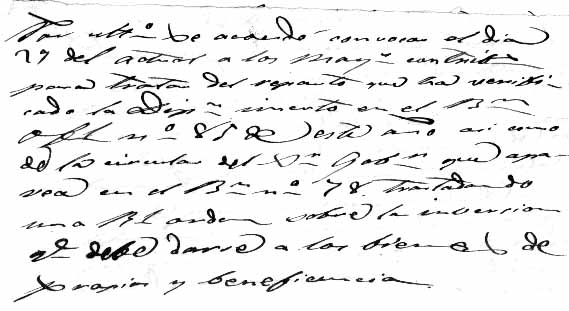 Por ultº se acordó convocar el dia
27 del actual a los mayˢ contribˢ
para tratar del reparto que ha verifi-
cado la Dipⁿ inserto en el Bⁿ
Ofl nº 85 de este año asi como
de la circular del Sʳ Gobʳ que apa-
rece en el Bⁿ nº 78 trasladando
una Rl orden sobre la inversion
qᵉ debe darse a los bienes de
propios y beneficencia.